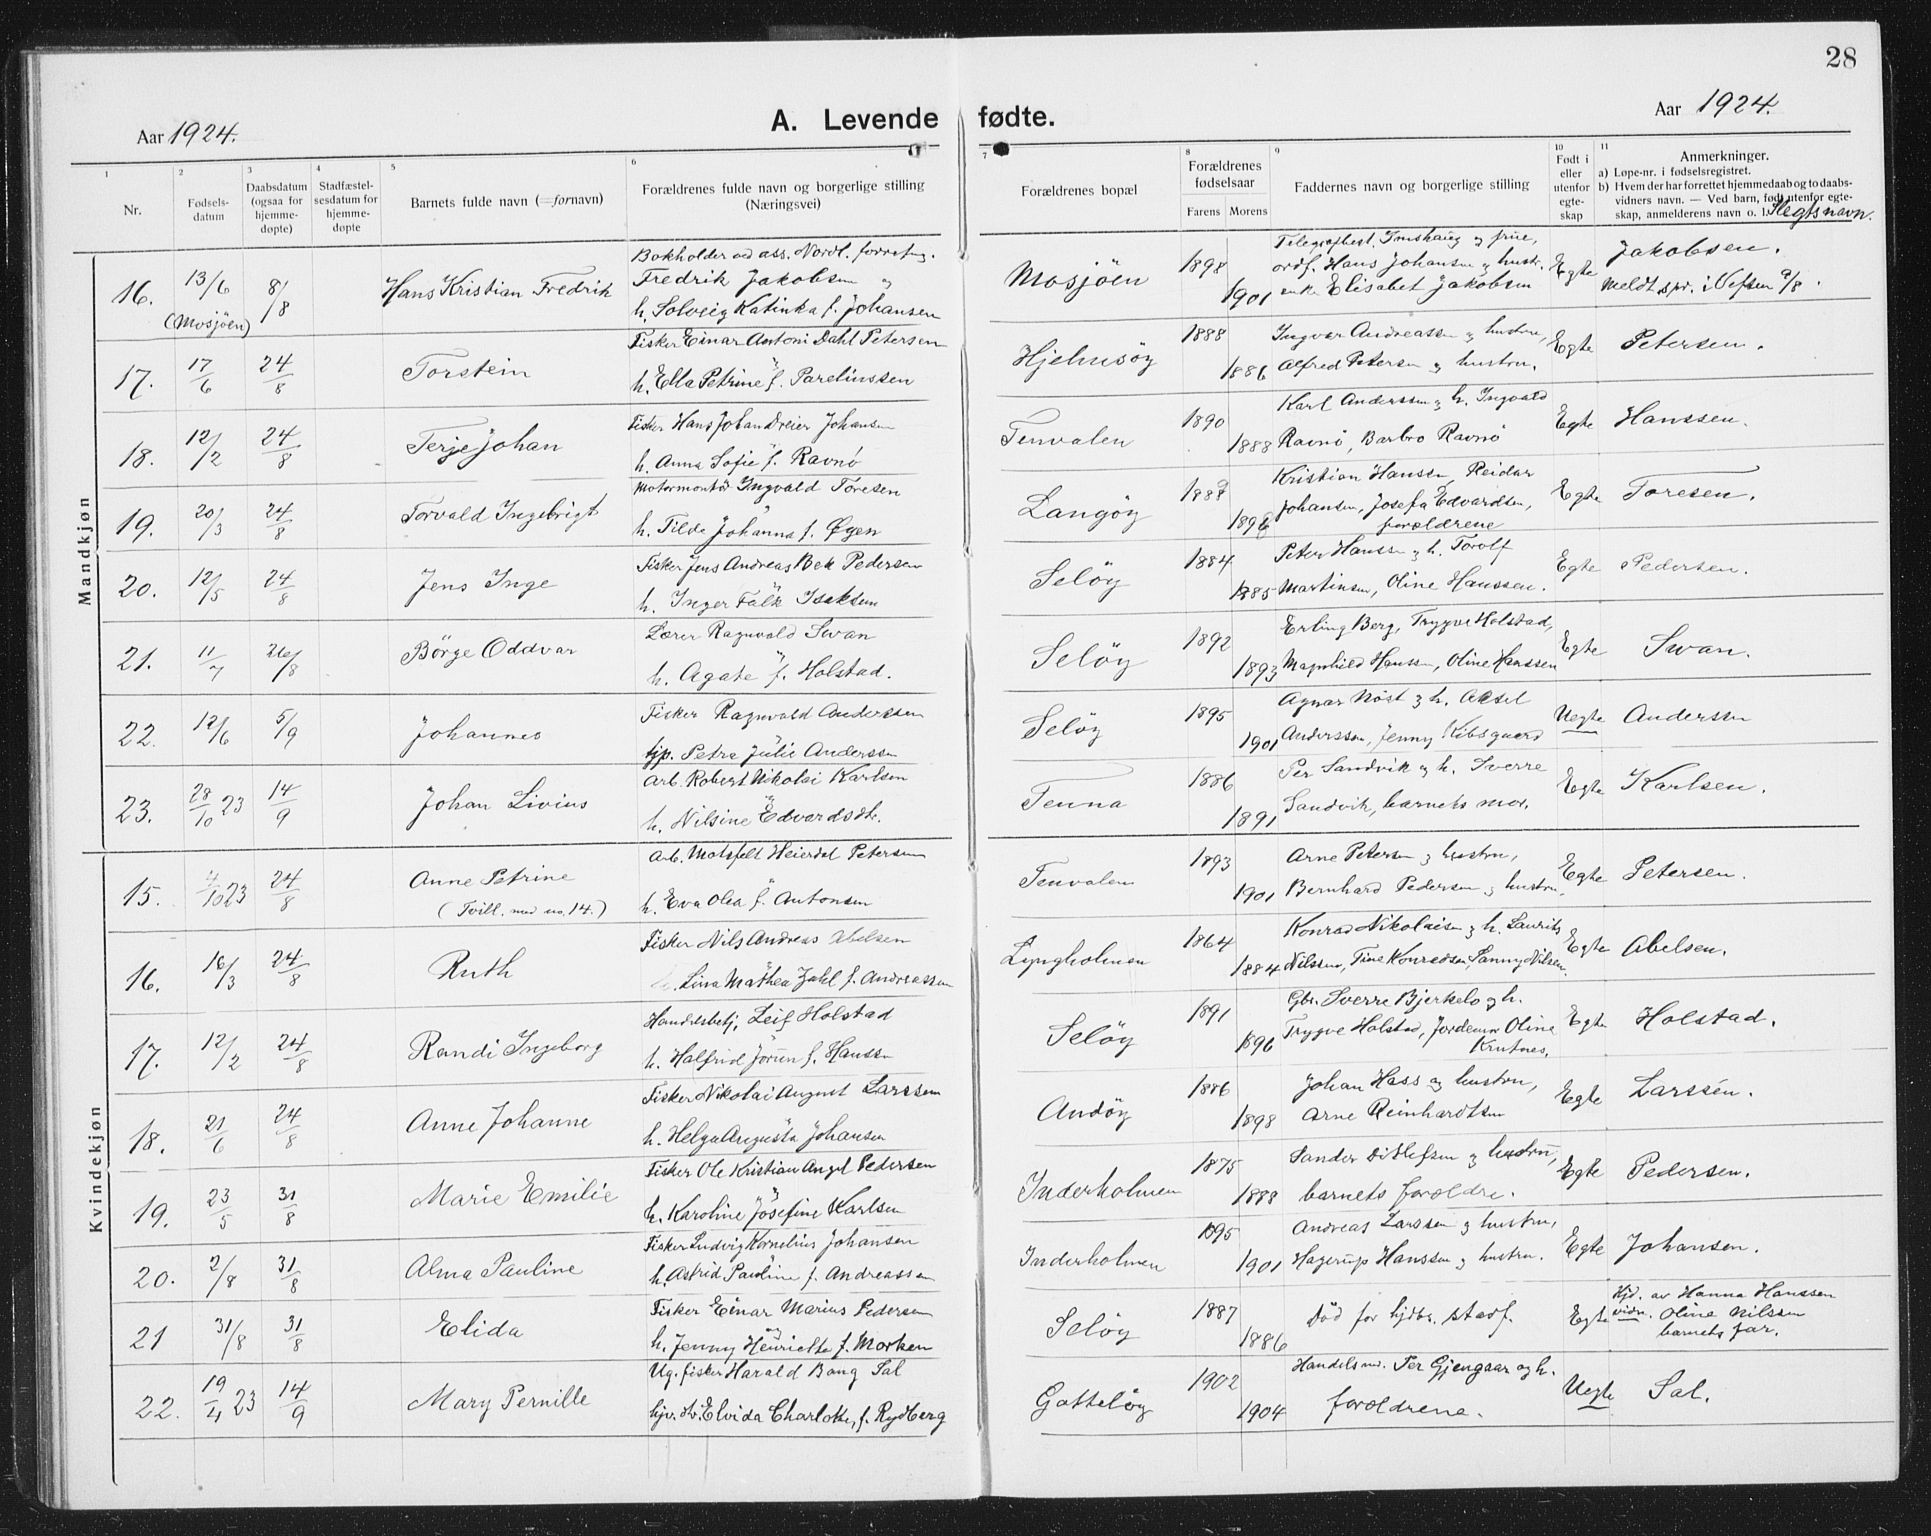 28
Aar 1924.
A. Levende fødte.
Aar 1924.
1 Nr.
2 Fødsels-datum
3 Daabsdatum (ogsaa for hjemme-døpte)
4 Stadfæstel-sesdatum for hjemme-døpte
5 Barnets fulde navn (=fornavn)
6 Forældrenes fulde navn og borgerlige stilling (Næringsvei)
7 Forældrenes bopæl
8 Forældrenes fødselsaar Farens Morens
9 Faddernes navn og borgerlige stilling
10 Født i eller utenfor egte-skap
11 Anmerkninger.
a) Løpe-nr. i fødselsregistret.
b) Hvem der har forrettet hjemmedaab og to daabs-
vidners navn. — Ved barn, født utenfor egte-
skap, anmelderens navn o. l. Slegtsnavn.
Mandkjøn
16. 13/6 (Mosjöen) 8/8 Hans Kristian Fredrik
Bokholder ved ass. Nordl. forretn.
Fredrik Jakobsen og
h. Solveig Katinka f. Johansen
Mosjöen 1898 1901
ordf. Hans Johansen og hustr.
enke Elisabet Jakobsen
Egte Jakobsen.
Meldt spr. i Vefsen
17. 17/6 24/8 Torstein
Fisker Einar Antoni Dahl Petersen
h. Ella Petrine f. Parelinssen
Hjelmsöy 1888 1886
Ingvar Andreassen og hustru,
Alfred Petersen og hustru.
Egte Petersen.
18. 12/2 24/8 Terje Johan
Fisker Hans Johan Dreier Johansen
h. Anna Sofie f. Ravnø
Tenvalen 1890 1888
Karl Anderssen og h. Ingvald
Ravnø, Barbro Ravnø
Egte Hanssen.
19. 20/3 24/8 Torvald Ingebrigt
Motormontør Ingvald Toresen
h. Tilda Johanna f. Øyen
Langöy
Kristian Hanssen, Reidar
Johansen, Josefa Edvardsen,
forældrene
Egte Toresen.
20. 12/5 24/8 Jens Inge
Fisker Jens Andreas Bek Pedersen
h. Inger Falk Isaksen
Selöy 1884 1885
Peter Hanssen og h. Torolf
Martinsen, Oline Hanssen.
Egte Pedersen.
21. 11/7 26/8 Börge Oddvar
Lærer Ragnvald Swan
h. Agate f. Holstad.
Selöy 1892 1893
Erling Berg, Trygve Holstad,
Magnhild Hanssen, Oline Hanssen
Egte Swan.
22. 12/6 5/9 Johannes
Fisker Ragnvald Anderssen
tjp. Petra Julie Anderssen
Selöy 1895 1901
Agnar Nöst og h. Aksel
Anderssen, Jenny Kibsgaard
Uegte Anderssen
23. 28/10 23 14/9 Johan Livius
Arb. Robert Nikolai Karlsen
h. Nilsine Edvardsdtr.
Tenna 1886 1891
Per Sandvik og h. Sverre
Sandvik, barnets mor.
Egte Karlsen.
Kvindekjøn
15. 4/10 23 24/8 Anne Petrine
(Tvill. med no. 14.)
Arb. Motzfelt Heierdal Petersen
h. Eva Olea f. Antonsen
Tenvalen 1893 1901
Arne Petersen og hustru,
Bernhard Pedersen og hustru,
Egte Petersen.
16. 16/3 24/8 Ruth
Fisker Nils Andreas Abelsen
h. Lina Mathea Zahl f. Andreassen
Lyngholmen 1864 1884
Konrad Nikolaisen og h. Laurits
Nilssen, Tine Konradsen, Sanny Nilsen.
Egte Abelsen.
17. 12/2 24/8 Randi Ingeborg
Handelsbetj. Leif Holstad
h. Halfrid Jörun f. Hanssen
Selöy 1891 1896
Gbr. Sverre Bjerkelo og h.
Trygve Holstad, Jordemor Oline
Krutnes.
Egte Holstad.
18. 21/6 24/8 Anne Johanne
Fisker Nikolai August Larssen
h. Helga Augusta Johansen
Andöy 1886 1898
Johan Hass og hustru,
Arne Reinhardtsen
Egte Larssen.
19. 23/5 31/8 Marie Emilie
Fisker Ole Kristian Angel Pedersen
h. Karoline Josefine Karlsen
Inderholmen 1875 1888
Sander Ditlefsen og hustru,
barnets forældre.
Egte Pedersen.
20. 2/8 31/8 Alma Pauline
Fisker Ludvig Kornelius Johansen
h. Astrid Pauline f. Andreassen
Inderholmen 1895 1901
Andreas Larssen og hustru,
Hagerup Hanssen og hustru.
Egte Johansen.
21 31/8 31/8 Elida
Fisker Einar Marius Pedersen
h. Jenny Henriette f. Morken
Selöy 1887 1886
Död for hjdbs. stadf.
Egte
Hjd. av Hanna Hanssen
vidn. Olina Nilssen
barnets far.
22. 19/4 23 14/9 Mary Pernille
Ug. fisker Harald Bang Sal
hjv. Elvida Charlotte, f. Rydberg
Gotteløy 1902 1904
Handelsm. Per Gjengaar og h.
forældrene.
Uegte Sal.